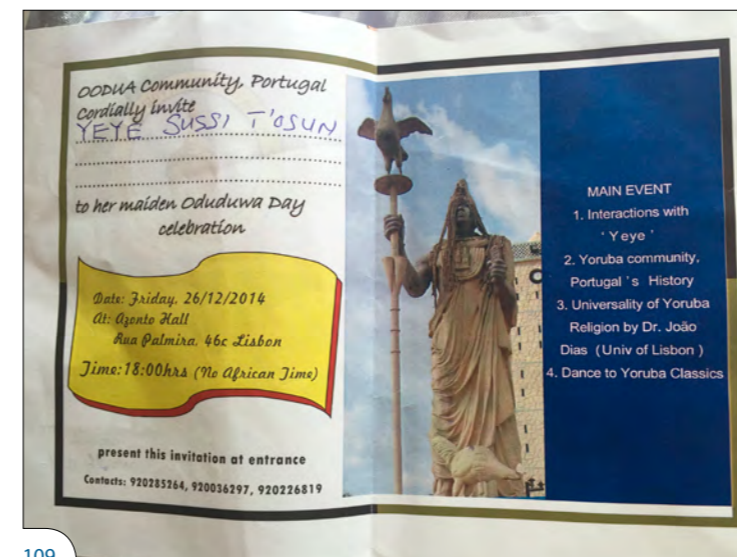 OODUA Community, Portugal
Cordially invite
YEYE SUSSI T'OSUN
to her maiden Oduduwa Day
celebration
Date: Friday, 26/12/2014
At: Azonto Hall
Rua Palmira, 46c Lisbon
Time:18:00hrs (No African Time)
present this invitation at entrance
Contacts: 920285264, 920036297, 920226819
MAIN EVENT
1. Interactions with
‘ Yeye ’
2. Yoruba community,
Portugal ’s History
3. Universality of Yoruba
Religion by Dr. João
Dias (Univ of Lisbon )
4. Dance to Yoruba Classics
109